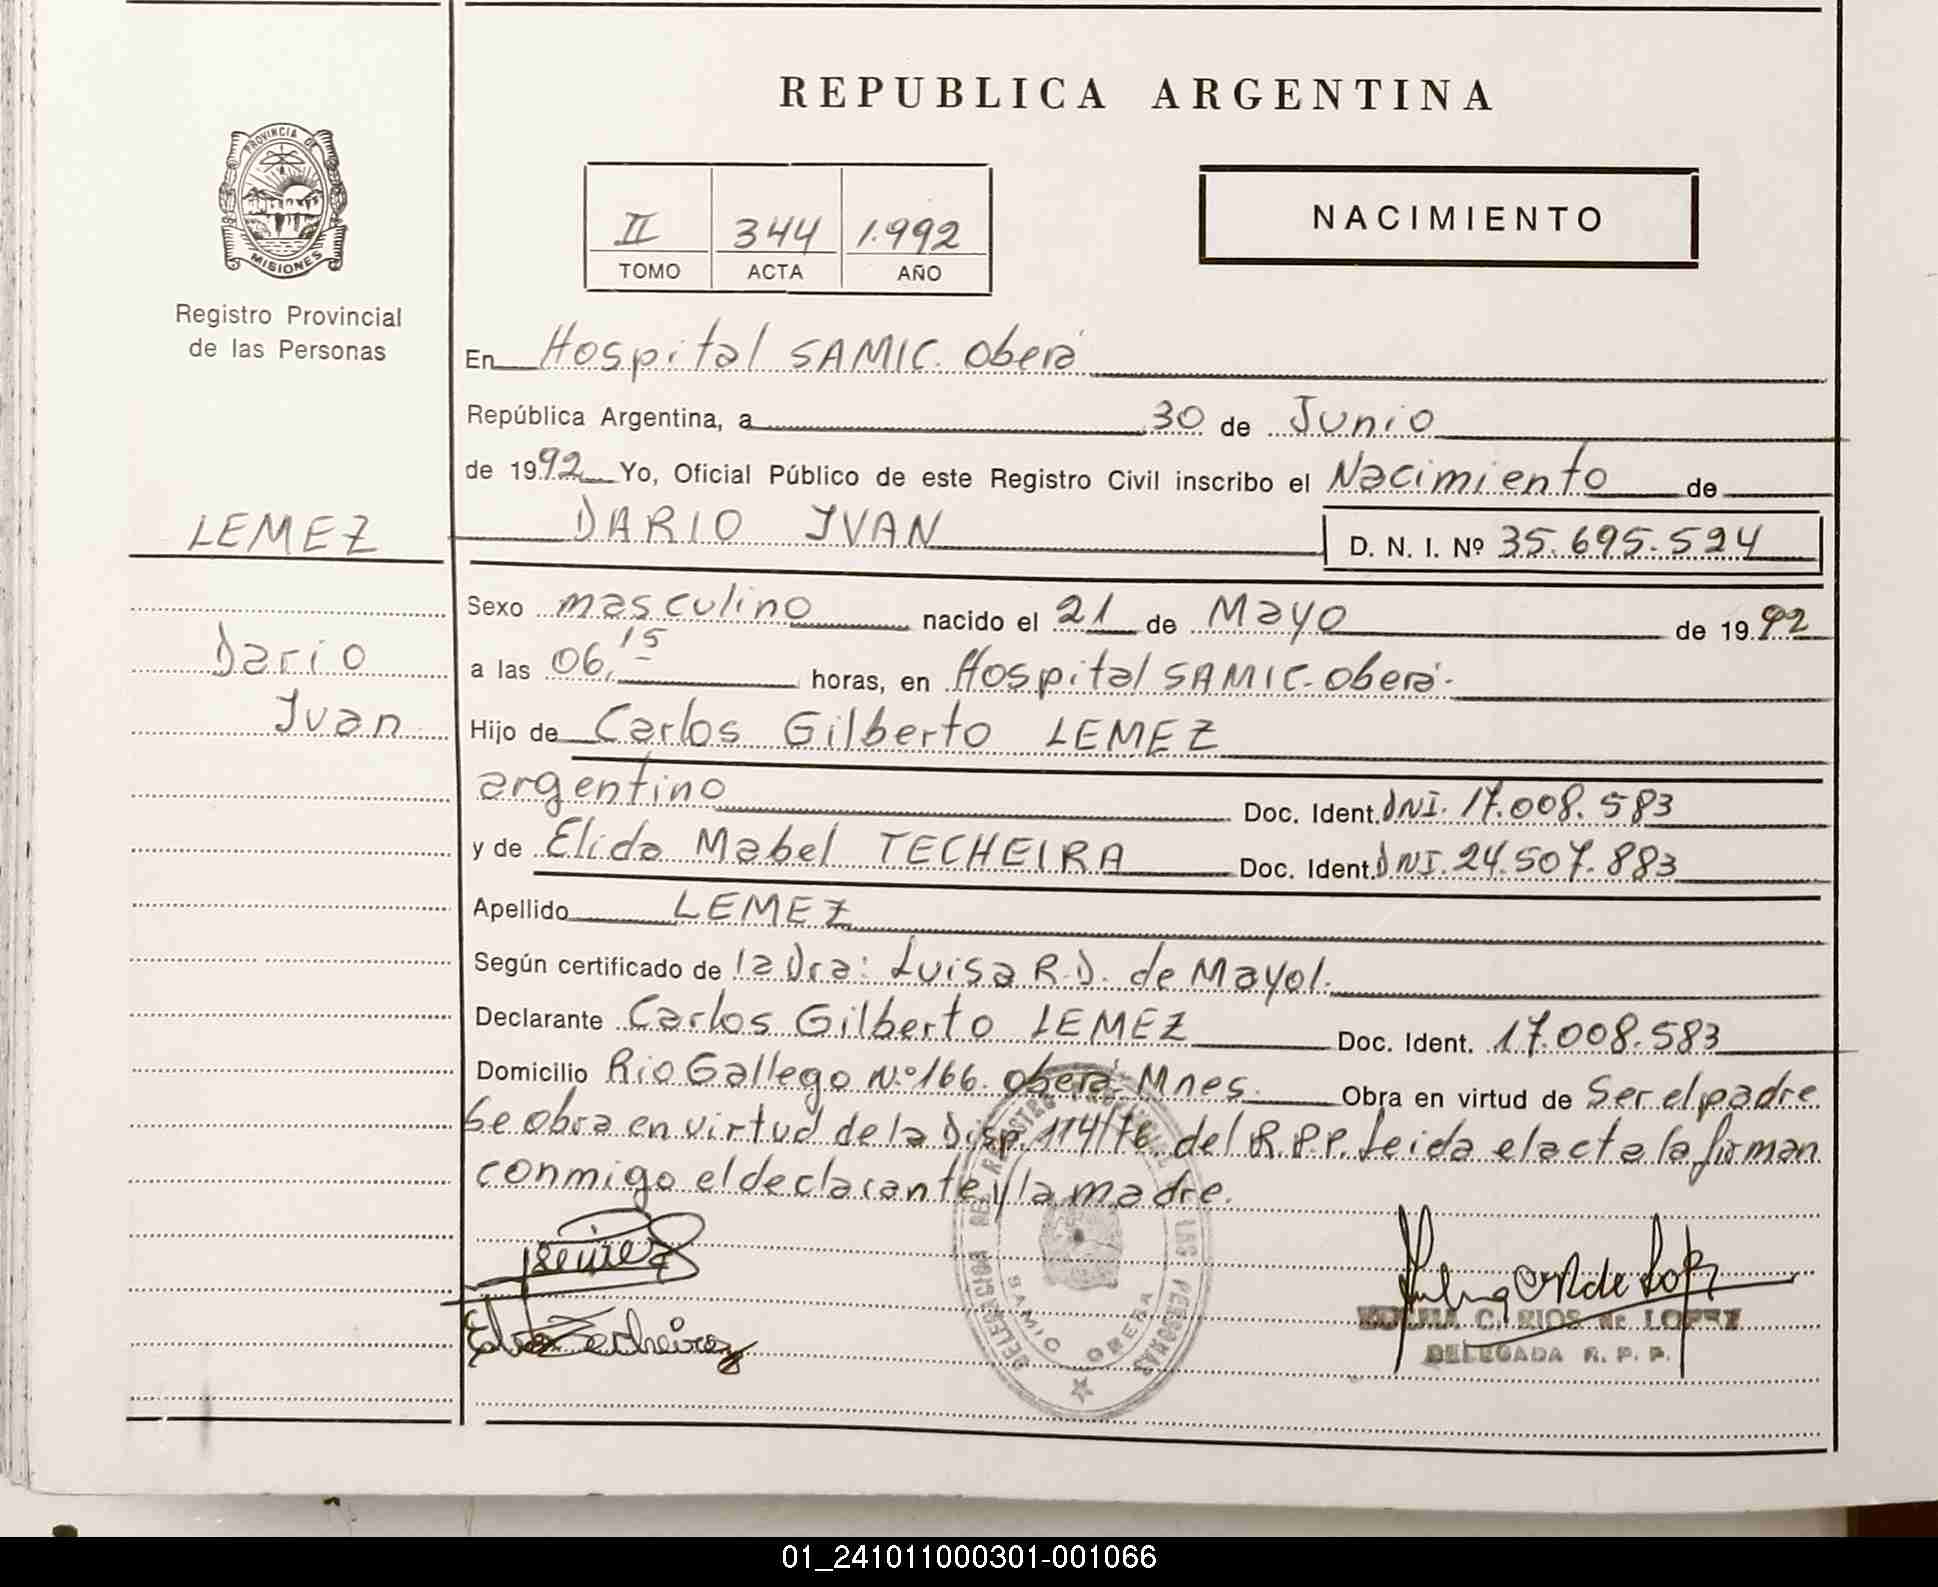 REPUBLICA ARGENTINA
PROVINCIA DE
MISIONES
Registro Provincial
de las Personas
II 344 1.992
TOMO ACTA AÑO
NACIMIENTO
En Hospital SAMIC. Oberá
República Argentina, a 30 de Junio
de 1992 Yo, Oficial Público de este Registro Civil inscribo el Nacimiento de
LEMEZ
DARIO IVAN D. N. I. Nº 35.695.524
Sexo masculino nacido el 21 de Mayo de 1992
Dario
Ivan
a las 06,15 horas, en Hospital SAMIC- Oberá-
Hijo de Carlos Gilberto LEMEZ
argentino Doc. Ident. DNI. 17.008.583
y de Elida Mabel TECHEIRA Doc. Ident. DNI. 24.507.883
Apellido LEMEZ
Según certificado de la Dra: Luisa R.D. de Mayol.
Declarante Carlos Gilberto LEMEZ Doc. Ident. 17.008.583
Domicilio Rio Gallego N.º 166. Oberá- Mnes. Obra en virtud de Ser el padre
Se obra en virtud de la Disp. 114/76 del R.P.P. Leida el acta la firman
conmigo el declarante y la madre.
DELEGACION DEL REGISTRO PROVINCIAL DE LAS PERSONAS
SAMIC OBERA
C. RIOS de LOPEZ
DELEGADA R. P. P.
01_241011000301-001066